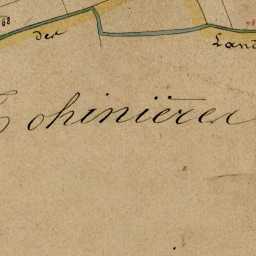 68
der
Land
Tohinières